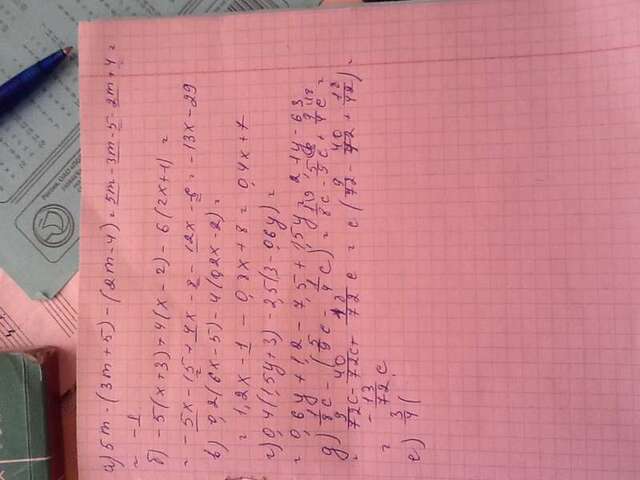 а) 5m - (3m + 5) - (2m - 4) = 5m - 3m - 5 - 2m + 4 =
= -1
б) -5(x+3) + 4(x - 2) - 6(2x+1) =
= -5x - 15 + 4x - 8 - 12x - 6 = -13x - 29
в) 0,2(6x - 5) - 4(0,2x - 2) =
= 1,2x - 1 - 0,8x + 8 = 0,4x + 7
г) 0,4(1,5y + 3) - 2,5(3 - 0,6y) =
= 0,6y + 1,2 - 7,5 + 1,5y = 2,1y - 6,3
д) 1/8 c - (5/9 c - 1/4 c) = 1/8 c - 5/9 c + 1/4 c =
= 9/72 c - 40/72 c + 18/72 c = c (9/72 - 40/72 + 18/72) =
= -13/72 c
е) 3/4 (